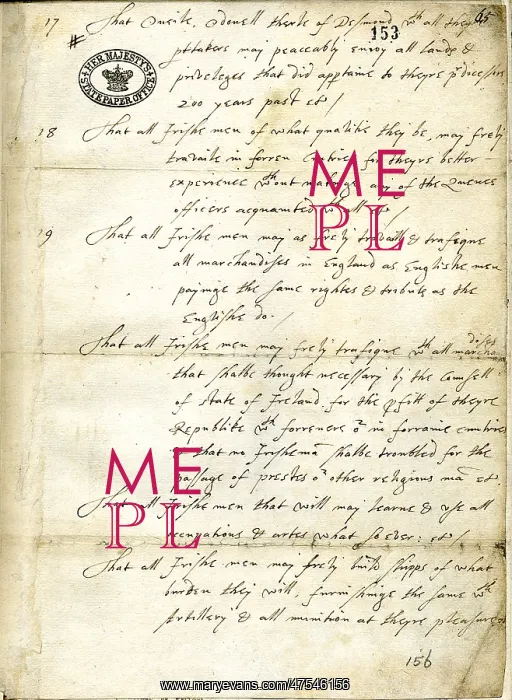 17 That Oneile, Odonell therle of Desmond wth all theyr 65
153
pttakers may peaceably enioy all lands &
HER MAJESTY'S STATE PAPER OFFICE
priveleges that did apptaine to theyre predicessors
200 years past &c /
18 That all Irishe men of what qualitie they be, may frely
travaile in forren Contries for theyre better
experience wthout makinge any of the Quenes
officers acquainted wthall &c /
ME
PL
19 That all Irishe men may as frely travaile & trafique
all marchandises in England as Englishe men
payinge the same rightes & tribute as the
Englishe do. /
That all Irishe men may frely trafique wth all marchandises
that shalbe thought necessary by the Counsell
of state of Ireland for the pfitt of theyre
Republike wth forreners or in forraine cuntries
that no Irishema shalbe troubled for the
ME
PL
passage of prestes or other religious ma &c.
That all Irishe men that will may learne & use all
occupations & artes what soever. &c /
That all Irishe men may frely build shipps of what
burden they will, furnishinge the same wth
Artillery & all munition at theyre pleasures
156
www.maryevans.com/47546156